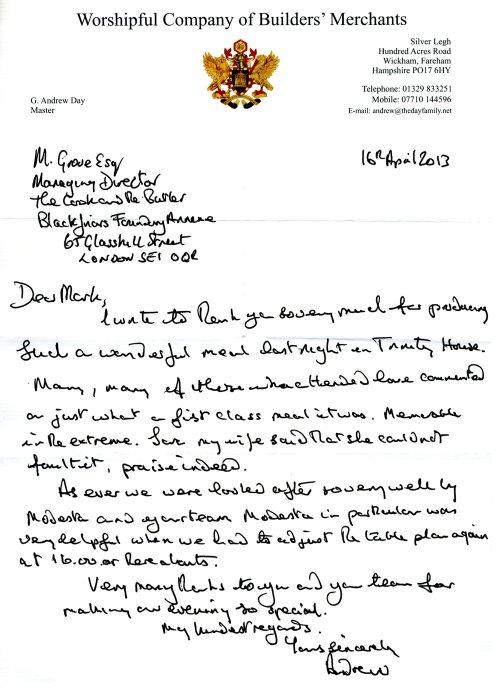 Worshipful Company of Builders' Merchants
Silver Legh
Hundred Acres Road
Wickham, Fareham
Hampshire PO17 6HY
Telephone: 01329 833251
Mobile: 07710 144596
E-mail: andrew@thedayfamily.net
G. Andrew Day
Master
16th April 2013
M. Grove Esq
Managing Director
The Cook and The Butler
Blackfriars Foundry Annexe
65 Glasshill Street
LONDON SE1 0QR
Dear Mark,
I write to thank you so very much for producing
such a wonderful meal last night in Trinity House.
Many, many of those who attended have commented
on just what a first class meal it was. Memorable
in the extreme. Even my wife said that she could not
fault it, praise indeed.
As ever we were looked after so very well by
Modesta and your team. Modesta in particular was
very helpful when we had to adjust the table plan again
at 16.00 or thereabouts.
Very many thanks to you and your team for
making an evening so special.
My kindest regards.
Yours sincerely
Andrew